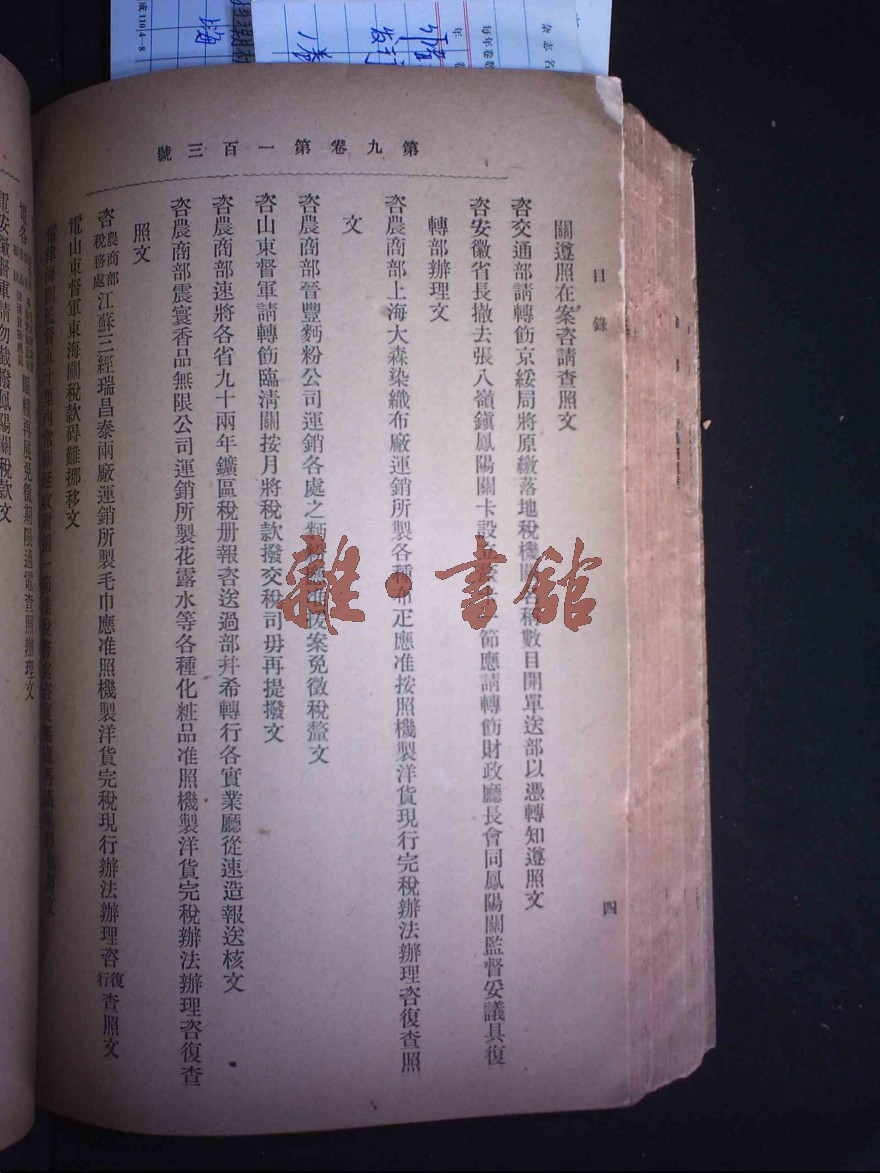 第九卷第一百三號
目錄
四
關遵照在案咨請查照文
咨交通部請轉飭京綏局將原繳落地稅機關名稱數目開單送部以憑轉知遵照文
咨安徽省長撤去張八嶺鎭鳳陽關卡設立 一節應請轉飭財政廳長會同鳳陽關監督妥議具復
轉部辦理文
咨農商部上海大森染織布廠運銷所製各種布疋應准按照機製洋貨現行完稅辦法辦理咨復查照
文
咨農商部晉豐麪粉公司運銷各處之麵粉 援案免徵稅釐文
咨山東督軍請轉飭臨淸關按月將稅款撥交稅司毋再提撥文
咨農商部速將各省九十兩年鑛區稅册報咨送過部幷希轉行各實業廳從速造報送核文
咨農商部震寰香品無限公司運銷所製花露水等各種化粧品准照機製洋貨完稅辦法辦理咨復查
照文
咨農商部稅務處江蘇三經瑞昌泰兩廠運銷所製毛巾應准照機製洋貨完稅現行辦法辦理咨復行查照文
電山東督軍東海關稅款碍難挪移文
電津海關監督五十里內常關
電各 賑糧再展免徵期限通電查照辦理文
電安徽督軍請勿截撥鳳陽關稅款文
雜·書館
杂志名
每年卷数
年
发行
卷
海
成110④4-8